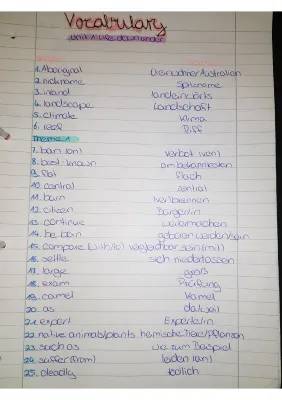 Vocabulary
Unit 1: Life down under
1. Aboriginal Ureinwohner Australien
2. nickname Spitzname
3. inland landeinwärts
4. landscape Landschaft
5. climate Klima
6. reef Riff
Theme 1
7. ban (on) Verbot (von)
8. best-known am bekanntesten
9. flat flach
10. central zentral
11. burn verbrennen
12. citizen Bürger/in
13. continue weitermachen
14. be born geboren werden/sein
15. compare (with/to) vergleichbar sein (mit)
16. settle sich niederlassen
17. large groß
18. exam Prüfung
19. camel Kamel
20. as da/weil
21. expert Experte/in
22. native animals/plants heimische Tiere/Pflanzen
23. such as wie zum Beispiel
24. suffer (from) leiden (an)
25. deadly tödlich